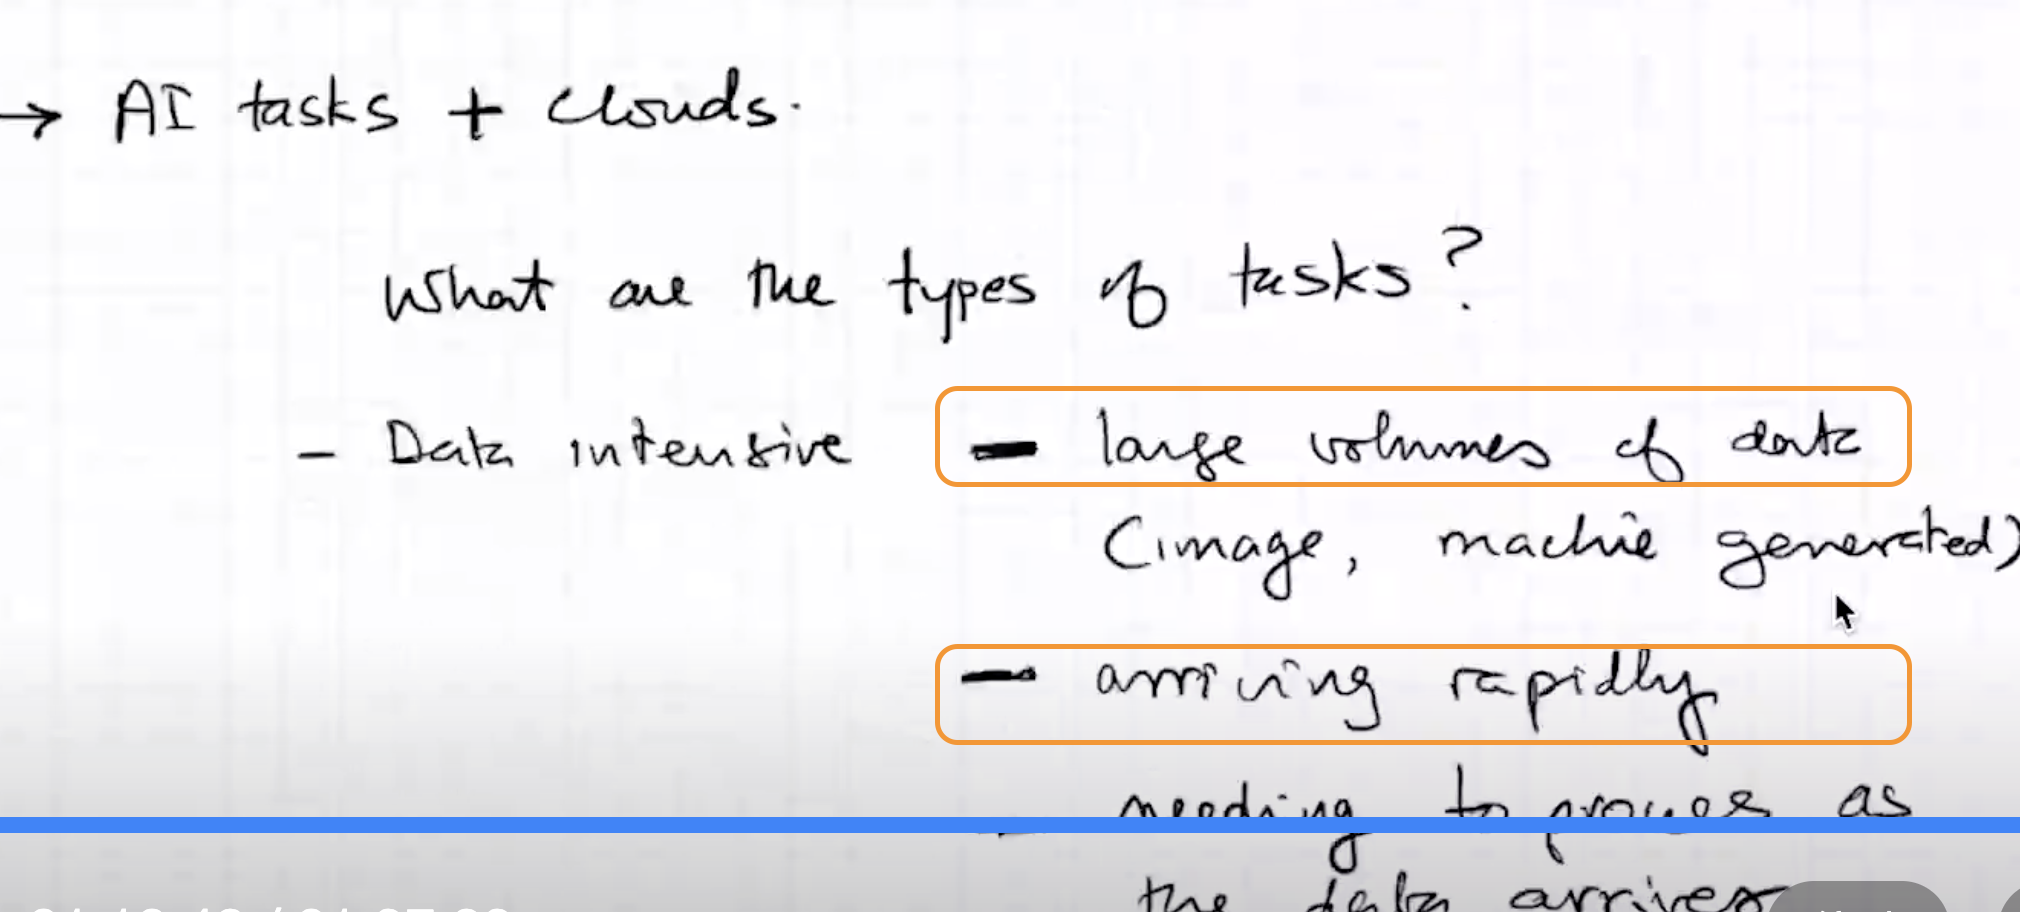 → AI tasks + clouds.
What are the types of tasks?
- Data intensive - large volumes of data
(image, machine generated)
- arriving rapidly
- needing to process as
the data arrives